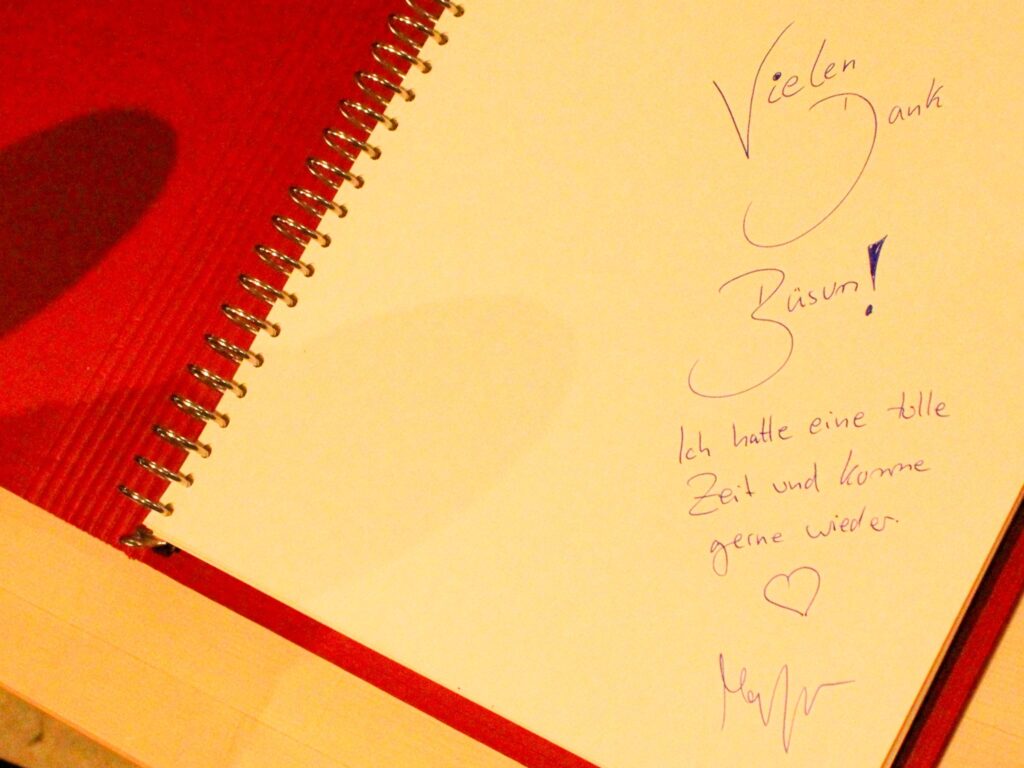 Vielen
Dank
Büsum!
Ich hatte eine tolle
Zeit und komme
gerne wieder.